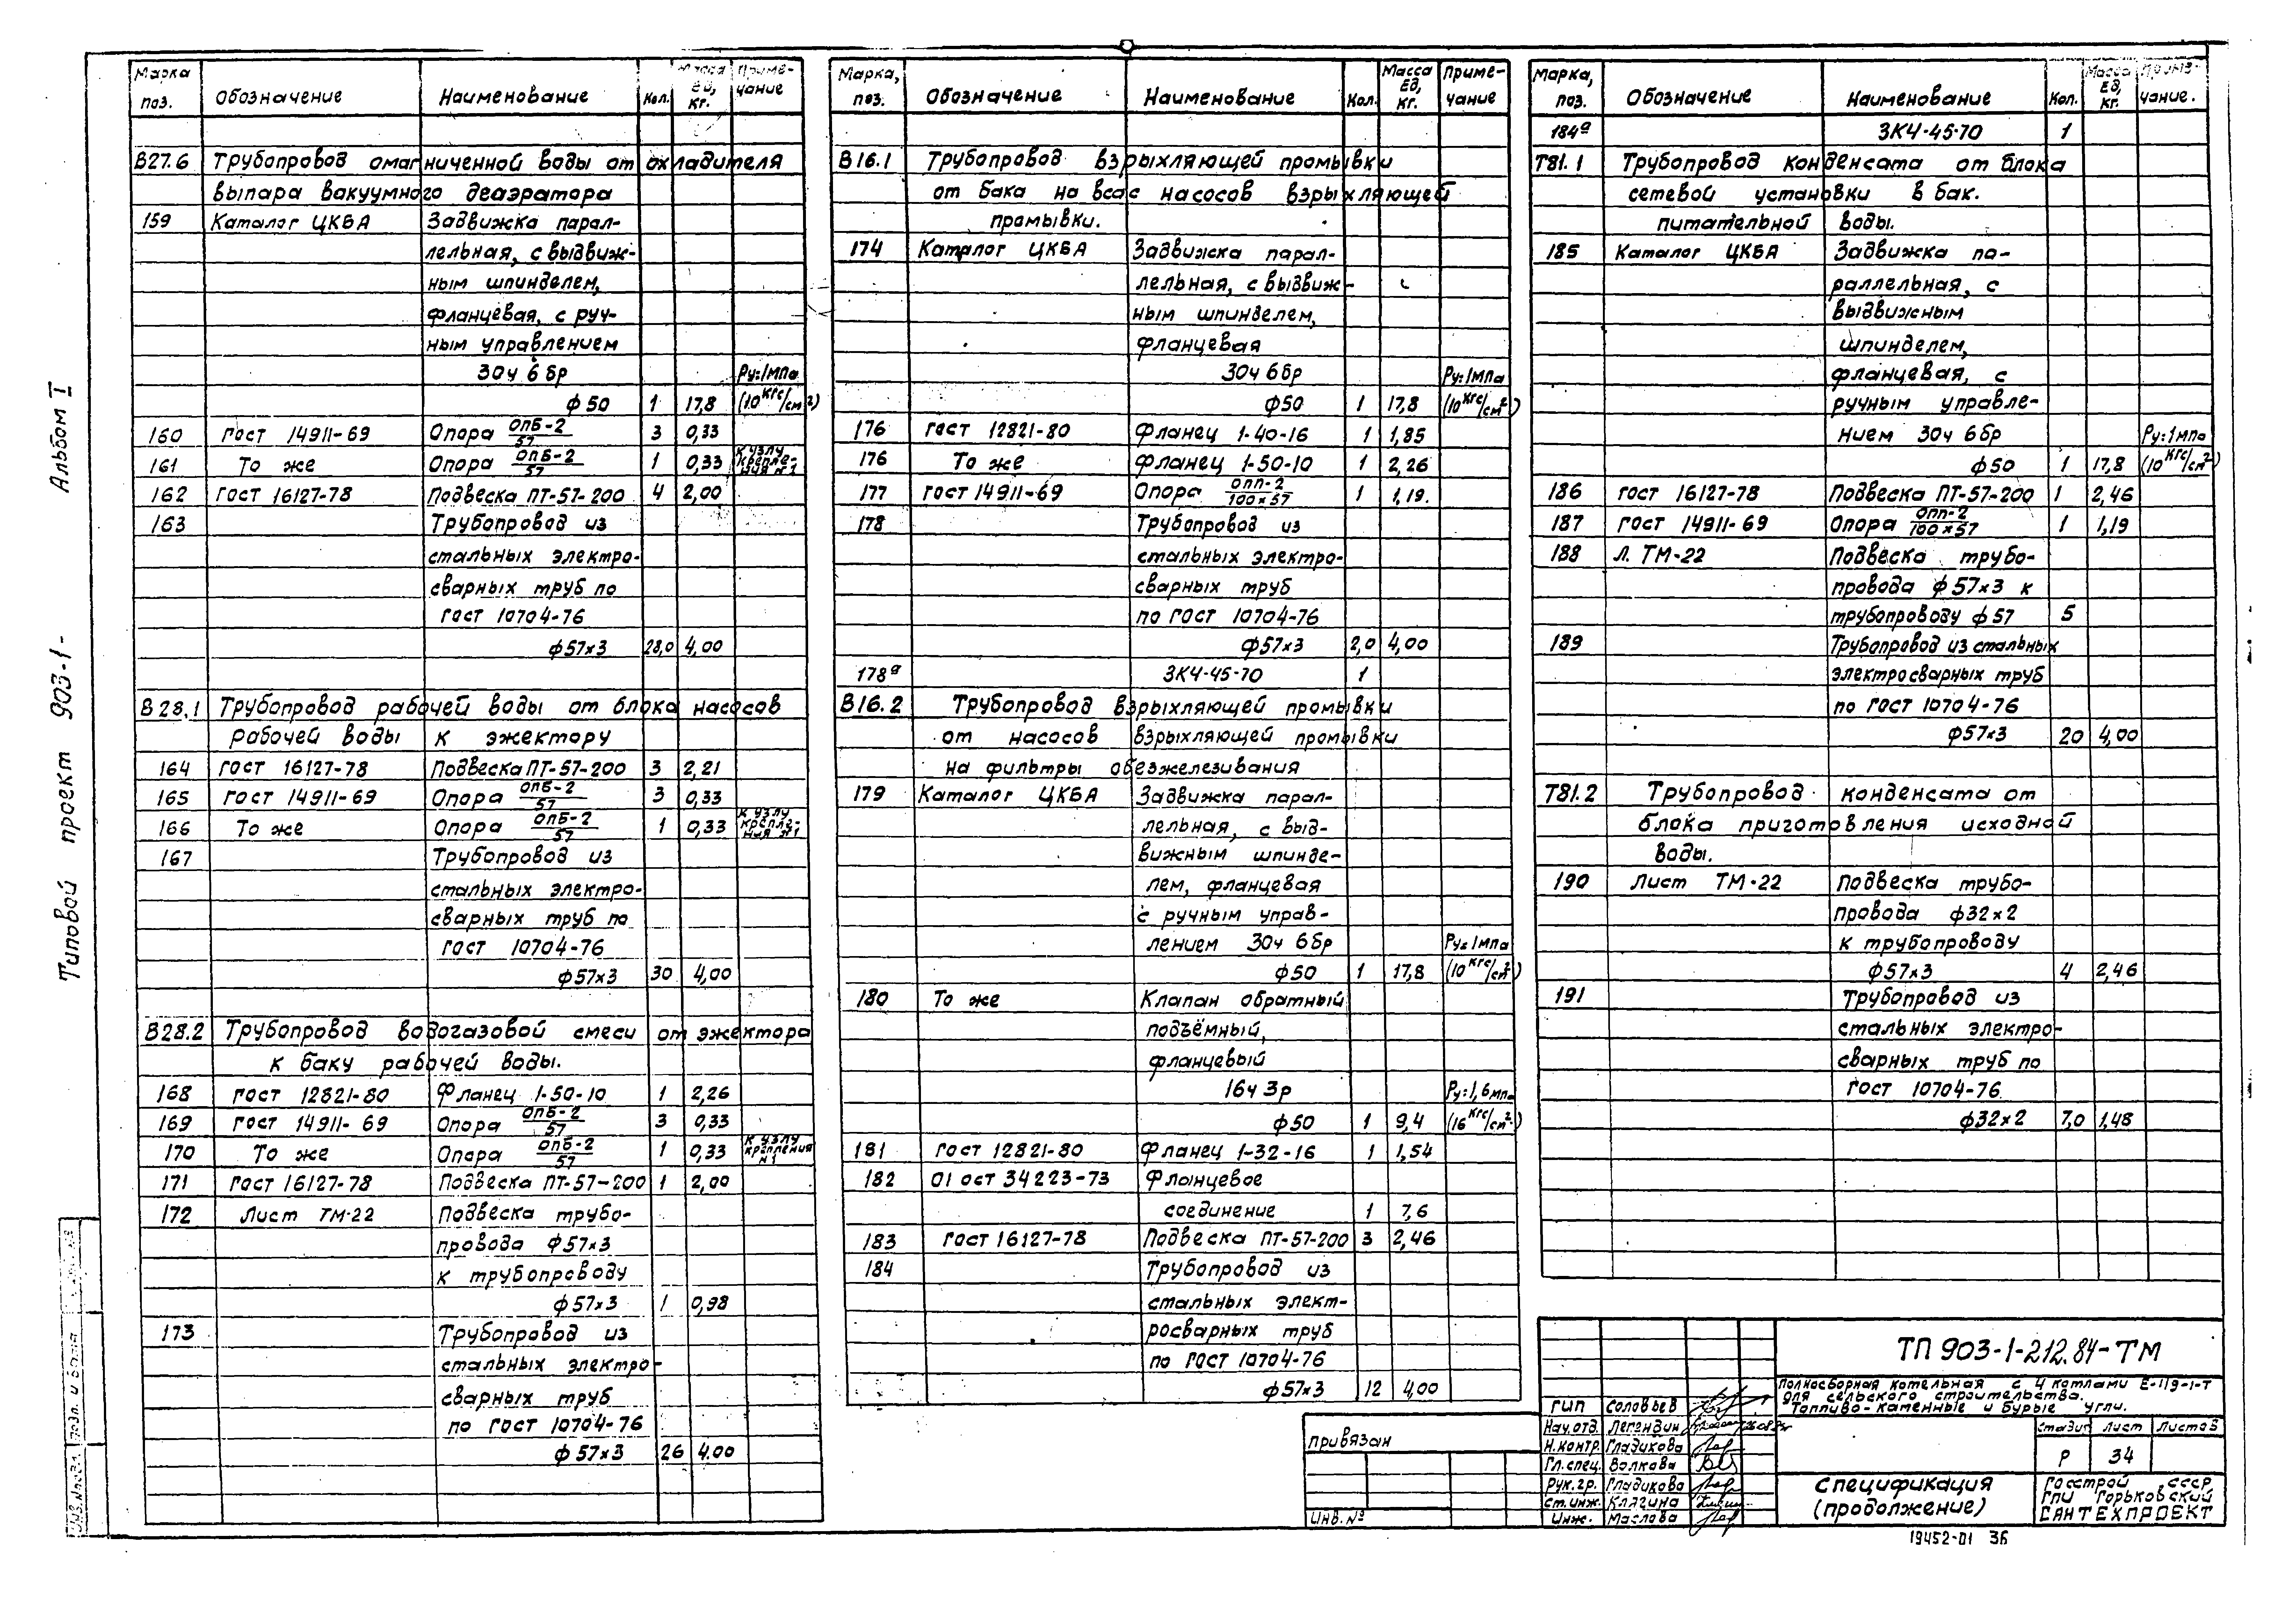 Альбом I
Типовой проект 903-1-
Марка поз. Обозначение Наименование Кол. Масса ед, кг. Приме-чание
В27.6 Трубопровод омагниченной воды от охладителя
выпара вакуумного деаэратора
159 Каталог ЦКБА Задвижка парал-
лельная, с выдвиж-
ным шпинделем,
фланцевая, с руч-
ным управлением
30ч 6 бр Ру=1мпа
ф50 1 17,8 (10 кгс/см²)
160 Гост 14911-69 Опора ОПБ-2/57 3 0,33
161 То же Опора ОПБ-2/57 1 0,33 К узлу крепле-ния №1
162 Гост 16127-78 Подвеска ПТ-57-200 4 2,00
163 Трубопровод из
стальных электро-
сварных труб по
ГОСТ 10704-76
ф57х3 28,0 4,00
В28.1 Трубопровод рабочей воды от блока насосов
рабочей воды к эжектору
164 Гост 16127-78 Подвеска ПТ-57-200 3 2,21
165 Гост 14911-69 Опора ОПБ-2/57 3 0,33
166 То же Опора ОПБ-2/57 1 0,33 К узлу крепле-ния №1
167 Трубопровод из
стальных электро-
сварных труб по
Гост 10704-76
ф57х3 30 4,00
В28.2 Трубопровод водогазовой смеси от эжектора
к баку рабочей воды.
168 Гост 12821-80 Фланец 1-50-10 1 2,26
169 Гост 14911-69 Опора ОПБ-2/57 3 0,33
170 То же Опора ОПБ-2/57 1 0,33 К узлу крепления №1
171 Гост 16127-78 Подвеска ПТ-57-200 1 2,00
172 Лист ТМ-22 Подвеска трубо-
провода ф57х3
к трубопроводу
ф57х3 1 0,98
173 Трубопровод из
стальных электро-
сварных труб
по Гост 10704-76
ф57х3 26 4.00
Марка, поз. Обозначение Наименование Кол. Масса ед, кг. Приме-чание
В16.1 Трубопровод взрыхляющей промывки
от бака на всас насосов взрыхляющей
промывки.
174 Каталог ЦКБА Задвижка парал-
лельная, с выдвиж-
ным шпинделем,
фланцевая
30ч 6бр Ру=1мпа
ф50 1 17,8 (10 кгс/см²)
176 Гост 12821-80 Фланец 1-40-16 1 1,85
176 То же Фланец 1-50-10 1 2,26
177 Гост 14911-69 Опора ОПП-2/100х57 1 1,19.
178 Трубопровод из
стальных электро-
сварных труб
по ГОСТ 10704-76
ф57х3 2,0 4,00
178а ЗК4-45-70 1
В16.2 Трубопровод взрыхляющей промывки
от насосов взрыхляющей промывки
на фильтры обезжелезивания
179 Каталог ЦКБА Задвижка парал-
лельная, с выд-
вижным шпинде-
лем, фланцевая
с ручным управ-
лением 30ч 6бр Ру=1мпа
ф50 1 17,8 (10 кгс/см²)
180 То же Клапан обратный
подъёмный,
фланцевый
16ч 3р Ру=1,6мпа
ф50 1 9,4 (16 кгс/см²)
181 Гост 12821-80 Фланец 1-32-16 1 1,54
182 01 ост 34223-73 Фланцевое
соединение 1 7,6
183 Гост 16127-78 Подвеска ПТ-57-200 3 2,46
184 Трубопровод из
стальных элект-
росварных труб
по Гост 10704-76
ф57х3 12 4,00
Марка, поз. Обозначение Наименование Кол. Масса ед, кг. Приме-чание.
184а ЗК4-45-70 1
Т81.1 Трубопровод конденсата от блока
сетевой установки в бак.
питательной воды.
185 Каталог ЦКБА Задвижка па-
раллельная, с
выдвижным
шпинделем,
фланцевая, с
ручным управле-
нием 30ч 6бр Ру=1мпа
ф50 1 17,8 (10 кгс/см²)
186 Гост 16127-78 Подвеска ПТ-57-200 1 2,46
187 Гост 14911-69 Опора ОПП-2/100х57 1 1,19
188 Л. ТМ-22 Подвеска трубо-
провода ф57х3 к
трубопроводу ф57 5
189 Трубопровод из стальных
электросварных труб
по Гост 10704-76
ф57х3 20 4,00
Т81.2 Трубопровод конденсата от
блока приготовления исходной
воды.
190 Лист ТМ-22 Подвеска трубо-
провода ф32х2
к трубопроводу
ф57х3 4 2,46
191 Трубопровод из
стальных электро-
сварных труб по
ГОСТ 10704-76
ф32х2 7,0 1,48
ТП 903-1-212.84-ТМ
Полносборная котельная с 4 котлами Е-1/9-1-Т
для сельского строительства.
Топливо-каменные и бурые угли.
ГИП Соловьев
Нач.отд. Легендин
Н.контр. Гладикова
Гл.спец. Волкова
Рук.гр. Гладикова
Ст.инж. Клягина
Инж. Маслова
Стадия Лист Листов
Р 34
Спецификация
(продолжение)
Госстрой СССР
ГПИ Горьковский
САНТЕХПРОЕКТ
Привязан
Инв.№
Подп. и дата
19452-01 36